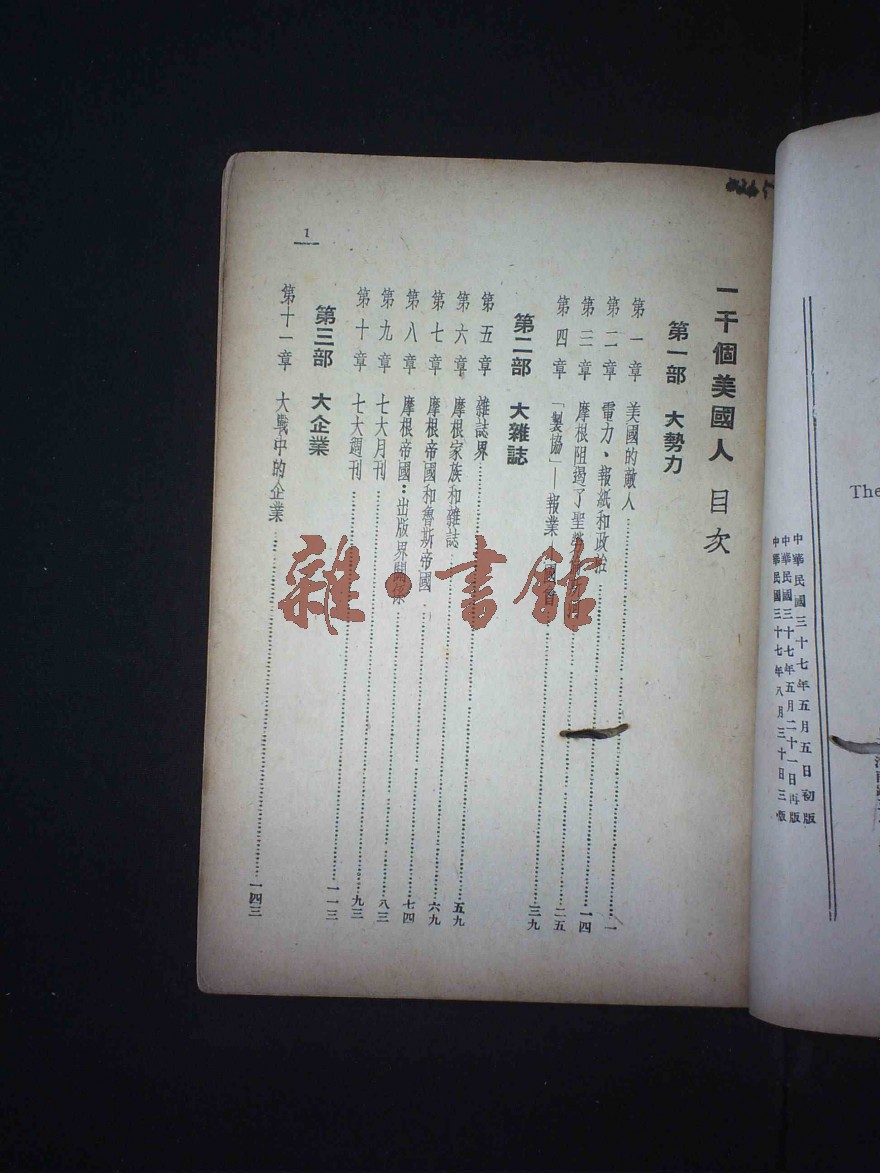 The
中華民國三十七年五月五日初版
中華民國三十七年五月二十一日再版
中華民國三十七年八月三十日三版
一千個美國人 目次
第一部 大勢力
第一章 美國的敵人……一
第二章 電力、報紙和政治……一四
第三章 摩根阻遏了聖……二五
第四章 「製協」—報業……三九
第二部 大雜誌
第五章 雜誌界……五九
第六章 摩根家族和雜誌……六九
第七章 摩根帝國和魯斯帝國……七四
第八章 摩根帝國：出版界關係……八三
第九章 七大月刊……九三
第十章 七大週刊……一一三
第三部 大企業
第十一章 大戰中的企業……一四三
1
雜·書館